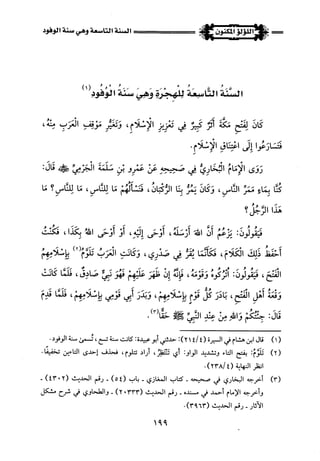 اللؤلؤ المكنون
السنة التاسعة وهي سنة الوفود
السَّنَةُ التَّاسِعَةُ لِلْهِجْرَةِ وَهِيَ سَنَةُ الْوُفُودِ (١)
كَانَ لِفَتْحِ مَكَّةَ أَثَرٌ كَبِيرٌ فِي تَعْزِيزِ الْإِسْلَامِ، وَتَغَيُّرِ مَوْقِفِ الْعَرَبِ مِنْهُ،
فَتَسَارَعُوا إِلَى اعْتِنَاقِ الْإِسْلَامِ.
رَوَى الْإِمَامُ الْبُخَارِيُّ فِي صَحِيحِهِ عَنْ عَمْرِو بْنِ سَلَمَةَ الْجَرْمِيِّ ﷺ قَالَ:
كُنَّا بِمَاءٍ مَمَرَّ النَّاسِ، وَكَانَ يَمُرُّ بِنَا الرُّكْبَانُ، فَنَسْأَلُهُمْ مَا لِلنَّاسِ، مَا لِلنَّاسِ؟ مَا
هَذَا الرَّجُلُ؟
فَيَقُولُونَ: يَزْعُمُ أَنَّ اللهَ أَرْسَلَهُ، أَوْحَى إِلَيْهِ، أَوْ أَوْحَى اللهُ بِكَذَا، فَكُنْتُ
أَحْفَظُ ذَلِكَ الْكَلَامَ، فَكَأَنَّمَا يُقَرُّ فِي صَدْرِي، وَكَانَتِ الْعَرَبُ تَلَوَّمُ (٢) بِإِسْلَامِهِمُ
الْفَتْحَ، فَيَقُولُونَ: اتْرُكُوهُ وَقَوْمَهُ، فَإِنَّهُ إِنْ ظَهَرَ عَلَيْهِمْ فَهُوَ نَبِيٌّ صَادِقٌ، فَلَمَّا كَانَتْ
وَقْعَةُ أَهْلِ الْفَتْحِ، بَادَرَ كُلُّ قَوْمٍ بِإِسْلَامِهِمْ، وَبَدَرَ أَبِي قَوْمِي بِإِسْلَامِهِمْ، فَلَمَّا قَدِمَ
قَالَ: جِئْتُكُمْ وَاللهِ مِنْ عِنْدِ النَّبِيِّ ﷺ حَقًّا (٣).
(١) قال ابن هشام في السيرة (٢١٤/٤): حدثني أبو عبيدة: كانت سنة تسع، تُسمى سنة الوفود.
(٢) تَلَوَّمُ: بفتح التاء وتشديد الواو: أي تَنْتَظِرُ، أراد تتلوم، فحذف إحدى التاءين تخفيفًا.
انظر النهاية (٢٣٨/٤).
(٣) أخرجه البخاري في صحيحه ـ كتاب المغازي ـ باب (٥٤) ـ رقم الحديث (٤٣٠٢) ـ
وأخرجه الإمام أحمد في مسنده ـ رقم الحديث (٢٠٣٣٣) ـ والطحاوي في شرح مشكل
الآثار ـ رقم الحديث (٣٩٦٣).
١٩٩